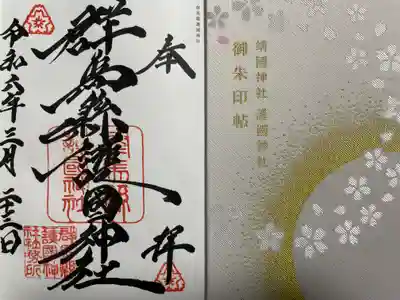 奉拝
群馬縣護國神社
令和六年三月二十三日
群馬縣
護國神
社社務所
靖國神社 護國神社
御朱印帖